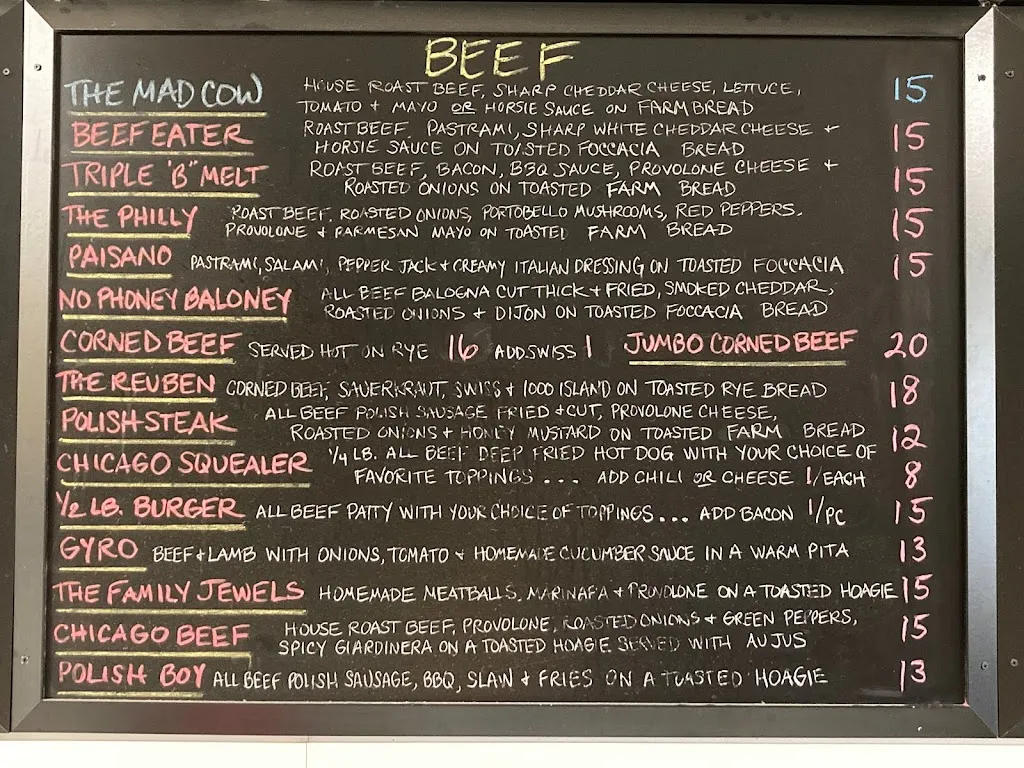 BEEF
THE MAD COW HOUSE ROAST BEEF, SHARP CHEDDAR CHEESE, LETTUCE, 15
TOMATO + MAYO OR HORSIE SAUCE ON FARM BREAD
BEEFEATER ROAST BEEF, PASTRAMI, SHARP WHITE CHEDDAR CHEESE + 15
HORSIE SAUCE ON TOASTED FOCCACIA BREAD
TRIPLE "B" MELT ROAST BEEF, BACON, BBQ SAUCE, PROVOLONE CHEESE + 15
ROASTED ONIONS ON TOASTED FARM BREAD
THE PHILLY ROAST BEEF, ROASTED ONIONS, PORTOBELLO MUSHROOMS, RED PEPPERS, 15
PROVOLONE + PARMESAN MAYO ON TOASTED FARM BREAD
PAISANO PASTRAMI, SALAMI, PEPPER JACK + CREAMY ITALIAN DRESSING ON TOASTED FOCCACIA 15
NO PHONEY BALONEY ALL BEEF BALOGNA CUT THICK + FRIED, SMOKED CHEDDAR,
ROASTED ONIONS + DIJON ON TOASTED FOCCACIA BREAD
CORNED BEEF SERVED HOT ON RYE 16 ADD SWISS 1 JUMBO CORNED BEEF 20
THE REUBEN CORNED BEEF, SAUERKRAUT, SWISS + 1000 ISLAND ON TOASTED RYE BREAD 18
POLISH STEAK ALL BEEF POLISH SAUSAGE FRIED + CUT, PROVOLONE CHEESE,
ROASTED ONIONS + HONEY MUSTARD ON TOASTED FARM BREAD 12
CHICAGO SQUEALER 1/4 LB. ALL BEEF DEEP FRIED HOT DOG WITH YOUR CHOICE OF
FAVORITE TOPPINGS... ADD CHILI OR CHEESE 1/EACH 8
1/2 LB. BURGER ALL BEEF PATTY WITH YOUR CHOICE OF TOPPINGS... ADD BACON 1/PC 15
GYRO BEEF + LAMB WITH ONIONS, TOMATO + HOMEMADE CUCUMBER SAUCE IN A WARM PITA 13
THE FAMILY JEWELS HOMEMADE MEATBALLS, MARINARA + PROVOLONE ON A TOASTED HOAGIE 15
CHICAGO BEEF HOUSE ROAST BEEF, PROVOLONE, ROASTED ONIONS + GREEN PEPPERS, 15
SPICY GIARDINERA ON A TOASTED HOAGIE SERVED WITH AU JUS
POLISH BOY ALL BEEF POLISH SAUSAGE, BBQ, SLAW + FRIES ON A TOASTED HOAGIE 13